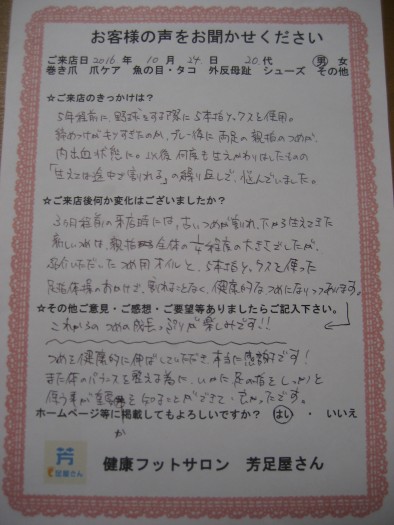 お客様の声をお聞かせください
ご来店日 2016 年 10 月 24 日 20 代 男 女
巻き爪 爪ケア 魚の目・タコ 外反母趾 シューズ その他
☆ご来店のきっかけは？
5年程前に、野球をする際に5本指ソックスを使用。
締めつけがキツすぎたのか、プレー後に両足の親指のつめが、
内出血状態に。以後何度も生えかわりはしたものの
「生えては途中で割れる」の繰り返しで、悩んでいました。
☆ご来店後何か変化はございましたか？
3ヶ月程前の来店時には、古いつめが割れ、下から生えてきた
新しいつめは、親指全体の1/4程度の大きさでしたが、
紹介いただいたつめ用オイルと、5本指ソックスを使った
足指体操のおかげで、割れることなく、健康的なつめになりつつあります。
☆その他ご意見・ご感想・ご要望等ありましたらご記入下さい。
これからのつめの成長っぷりが楽しみです!!
つめを健康的に伸ばしていただき、本当に感謝です!
また体のバランスを整える為に、いかに足の指をしっかりと
使う事が重要かを知ることができて、良かったです。
ホームページ等に掲載してもよろしいですか？ はい ・ いいえ
芳
足屋さん
健康フットサロン 芳足屋さん